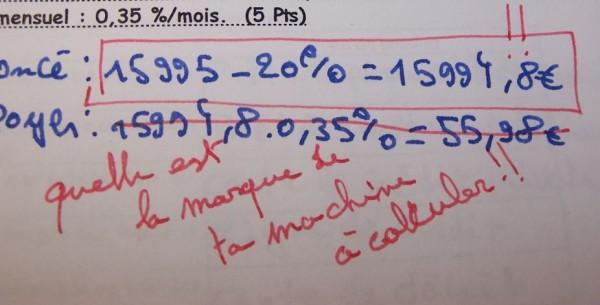 mensuel : 0,35 %/mois. (5 Pts)
!!
oncé : 15995 - 20% = 15994,8€
oyer : 15994,8 . 0,35% = 55,98€
quelle est
la marque de
ta machine
à calculer !!